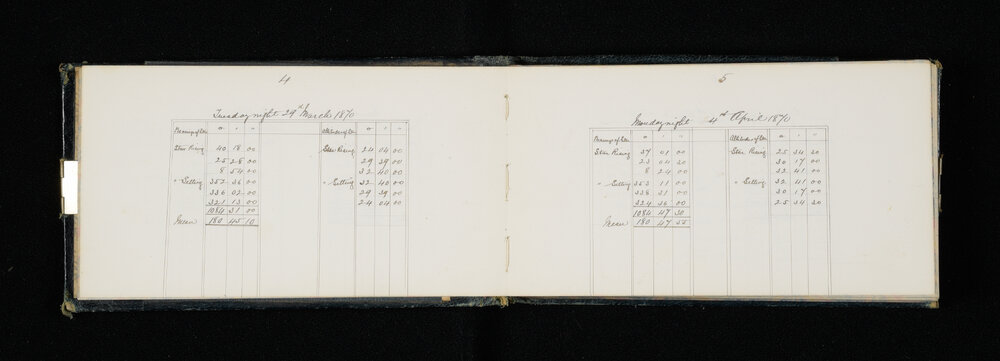 4
Tuesday night 29th March 1870
Bearings of Star ° ' " Altitudes of Star ° ' "
Star Rising 40 18 00 Star Rising 24 04 00
25 28 00 29 39 00
8 54 00 32 40 00
" Setting 352 36 00 " Setting 32 40 00
336 02 00 29 39 00
321 13 00 24 04 00
1084 31 00
Mean 180 45 10
5
Monday night 4th April 1870
Bearings of Star ° ' " Altitudes of Star ° ' "
Star Rising 37 01 00 Star Rising 25 34 30
23 04 30 30 17 00
8 24 00 32 41 00
" Setting 353 11 00 " Setting 32 41 00
338 31 00 30 17 00
324 36 00 25 34 30
1084 47 30
Mean 180 47 55